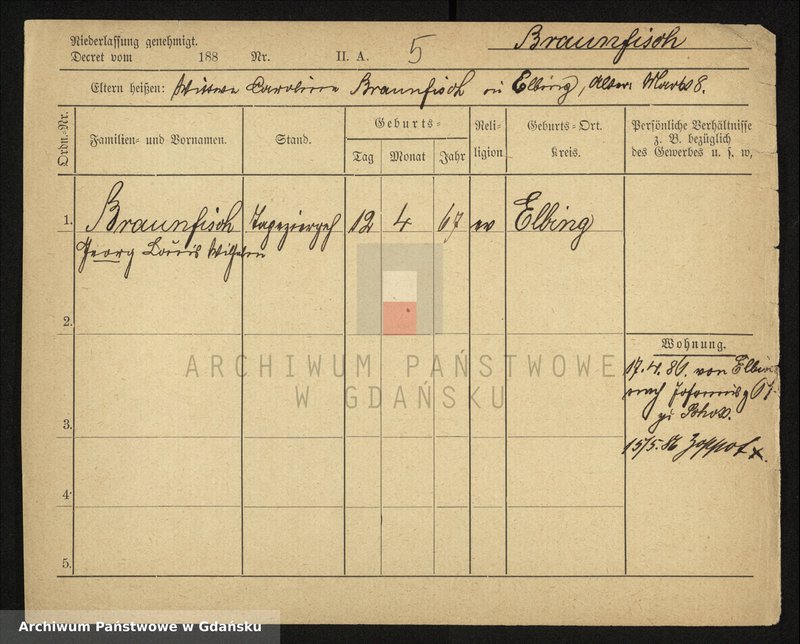 Niederlassung genehmigt.
Decret vom 188 Nr. II. A. 5 Braunfisch
Eltern heißen: Wittwe Caroline Braunfisch in Elbing, Alter Markt 8.
Ordn.-Nr. Familien- und Vornamen. Stand. Geburts- Reli- Geburts-Ort. Persönliche Verhältnisse
Tag Monat Jahr gion Kreis. z. B. bezüglich
des Gewerbes u. s. w,
1. Braunfisch Tapeziergeh 12 4 67 ev Elbing
Georg Louis Wilhelm
2.
Wohnung.
17.4.86. von Elbing
nach Johannisg 67
zu
3.
15/5.86 Zoppot x.
4.
5.
ARCHIWUM PAŃSTWOWE
W GDAŃSKU
Archiwum Państwowe w Gdańsku